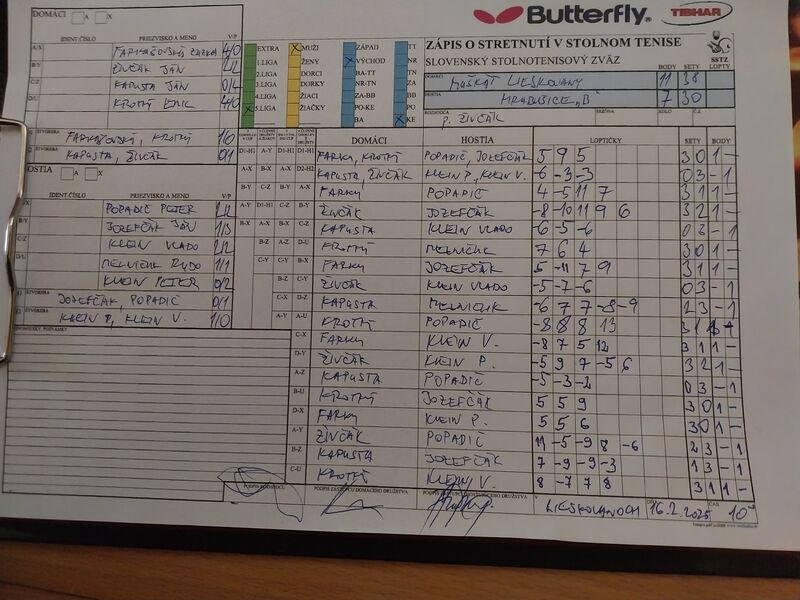 DOMÁCI A X
Butterfly TIBHAR
IDENT.ČÍSLO PRIEZVISKO A MENO V/P
A/X FARKAŠOVSKÝ 4/0
B/Y ŽIVČÁK JÁN 2/2
C/Z KAPUSTA JÁN 0/4
D/U KROTKÝ ERIK 4/0
ŠTVORHRA FARKAŠOVSKÝ, KROTKÝ 1/0
ŠTVORHRA KAPUSTA, ŽIVČÁK 0/1
EXTRA X MUŽI ZÁPAD TT
1.LIGA ŽENY X VÝCHOD NR
2.LIGA DORCI BA-TT TN
3.LIGA DORKY NR-TN ZA
4.LIGA ŽIACI ZA-BB BB
X 5.LIGA ŽIAČKY PO-KE PO
BA X KE
ZÁPIS O STRETNUTÍ V STOLNOM TENISE
SLOVENSKÝ STOLNOTENISOVÝ ZVÄZ
SSTZ
BODY SETY LOPTY
DOMÁCI MUŠKÁT LIESKOVANY 11 38
HOSTIA HRABUŠICE „B" 7 30
ROZHODCA P. ŽIVČÁK
HOSTIA A X
IDENT.ČÍSLO PRIEZVISKO A MENO V/P
A/X POPADIČ PETER 2/2
B/Y JOZEFČÁK JÁN 1/3
C/Z KLEIN VLADO 2/2
D/U MELNIČUK RUDO 1/1
KLEIN PETER 0/2
ŠTVORHRA JOZEFČÁK, POPADIČ 0/1
ŠTVORHRA KLEIN P, KLEIN V. 1/0
DOMÁCI HOSTIA LOPTIČKY SETY BODY
FARKY, KROTKÝ POPADIČ, JOZEFČÁK 5 9 5 3 0 1 -
KAPUSTA, ŽIVČÁK KLEIN P., KLEIN V. -6 -3 -3 0 3 - 1
FARKY POPADIČ 4 -5 11 7 3 1 1 -
ŽIVČÁK JOZEFČÁK -8 -10 11 9 6 3 2 1 -
KAPUSTA KLEIN VLADO -6 -5 -6 0 3 - 1
KROTKÝ MELNIČUK 7 6 4 3 0 1 -
FARKY JOZEFČÁK 5 -11 7 9 3 1 1 -
ŽIVČÁK KLEIN VLADO -5 -7 -6 0 3 - 1
KAPUSTA MELNIČUK -6 7 7 -8 -9 2 3 - 1
KROTKÝ POPADIČ -8 8 8 13 3 1
C-X FARKY KLEIN V. -8 7 5 12 3 1 1 -
D-Y ŽIVČÁK KLEIN P. -5 9 7 -5 6 3 2 1 -
A-Z KAPUSTA POPADIČ -5 -3 -2 0 3 - 1
B-U KROTKÝ JOZEFČÁK 5 5 9 3 0 1 -
D-X FARKY KLEIN P. 5 5 6 3 0 1 -
A-Y ŽIVČÁK POPADIČ 11 -5 -9 8 -6 2 3 - 1
B-Z KAPUSTA JOZEFČÁK 7 -9 -9 -3 1 3 - 1
C-U KROTKÝ KLEIN V. 8 -7 7 8 3 1 1 -
PODPIS ROZHODCU PODPIS ZÁSTUPCU DOMÁCEHO DRUŽSTVA
V LIESKOVANOCH 16.2.2025 ČAS 10